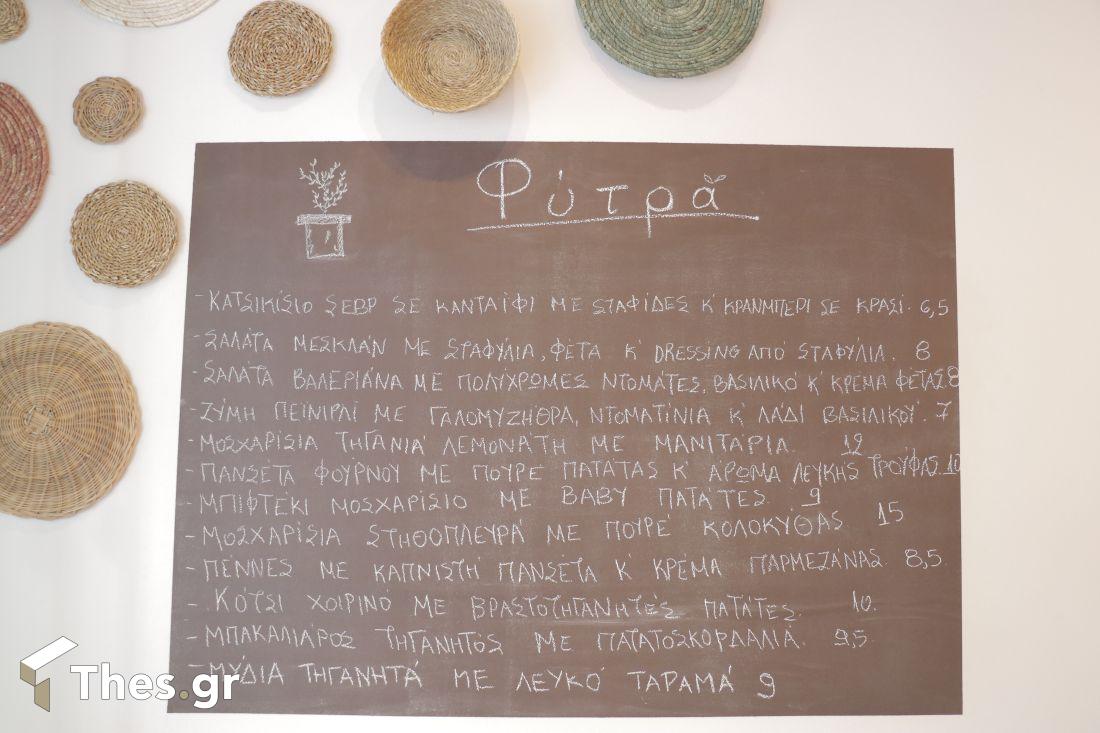 Φύτρα
- ΚΑΤΣΙΚΙΣΙΟ ΣΕΒΡ ΣΕ ΚΑΝΤΑΪΦΙ ΜΕ ΣΤΑΦΙΔΕΣ Κ' ΚΡΑΝΜΠΕΡΙ ΣΕ ΚΡΑΣΙ. 6,5
- ΣΑΛΑΤΑ ΜΕΣΚΛΑΝ ΜΕ ΣΤΑΦΥΛΙΑ, ΦΕΤΑ Κ' DRESSING ΑΠΟ ΣΤΑΦΥΛΙΑ. 8
- ΣΑΛΑΤΑ ΒΑΛΕΡΙΑΝΑ ΜΕ ΠΟΛΥΧΡΩΜΕΣ ΝΤΟΜΑΤΕΣ, ΒΑΣΙΛΙΚΟ Κ' ΚΡΕΜΑ ΦΕΤΑΣ. 8
- ΖΥΜΗ ΠΕΪΝΙΡΛΙ ΜΕ ΓΑΛΟΜΥΖΗΘΡΑ, ΝΤΟΜΑΤΙΝΙΑ Κ' ΛΑΔΙ ΒΑΣΙΛΙΚΟΥ. 7
- ΜΟΣΧΑΡΙΣΙΑ ΤΗΓΑΝΙΑ ΛΕΜΟΝΑΤΗ ΜΕ ΜΑΝΙΤΑΡΙΑ 12
- ΠΑΝΣΕΤΑ ΦΟΥΡΝΟΥ ΜΕ ΠΟΥΡΕ ΠΑΤΑΤΑΣ Κ' ΑΡΩΜΑ ΛΕΥΚΗΣ ΤΡΟΥΦΑΣ. 10
- ΜΠΙΦΤΕΚΙ ΜΟΣΧΑΡΙΣΙΟ ΜΕ BABY ΠΑΤΑΤΕΣ 9
- ΜΟΣΧΑΡΙΣΙΑ ΣΤΗΘΟΠΛΕΥΡΑ ΜΕ ΠΟΥΡΕ ΚΟΛΟΚΥΘΑΣ 15
- ΠΕΝΝΕΣ ΜΕ ΚΑΠΝΙΣΤΗ ΠΑΝΣΕΤΑ Κ' ΚΡΕΜΑ ΠΑΡΜΕΖΑΝΑΣ. 8,5
- ΚΟΤΣΙ ΧΟΙΡΙΝΟ ΜΕ ΒΡΑΣΤΟΤΗΓΑΝΗΤΕΣ ΠΑΤΑΤΕΣ. 10.
- ΜΠΑΚΑΛΙΑΡΟΣ ΤΗΓΑΝΗΤΟΣ ΜΕ ΠΑΤΑΤΟΣΚΟΡΔΑΛΙΑ. 9,5
- ΜΥΔΙΑ ΤΗΓΑΝΗΤΑ ΜΕ ΛΕΥΚΟ ΤΑΡΑΜΑ 9
Thes.gr